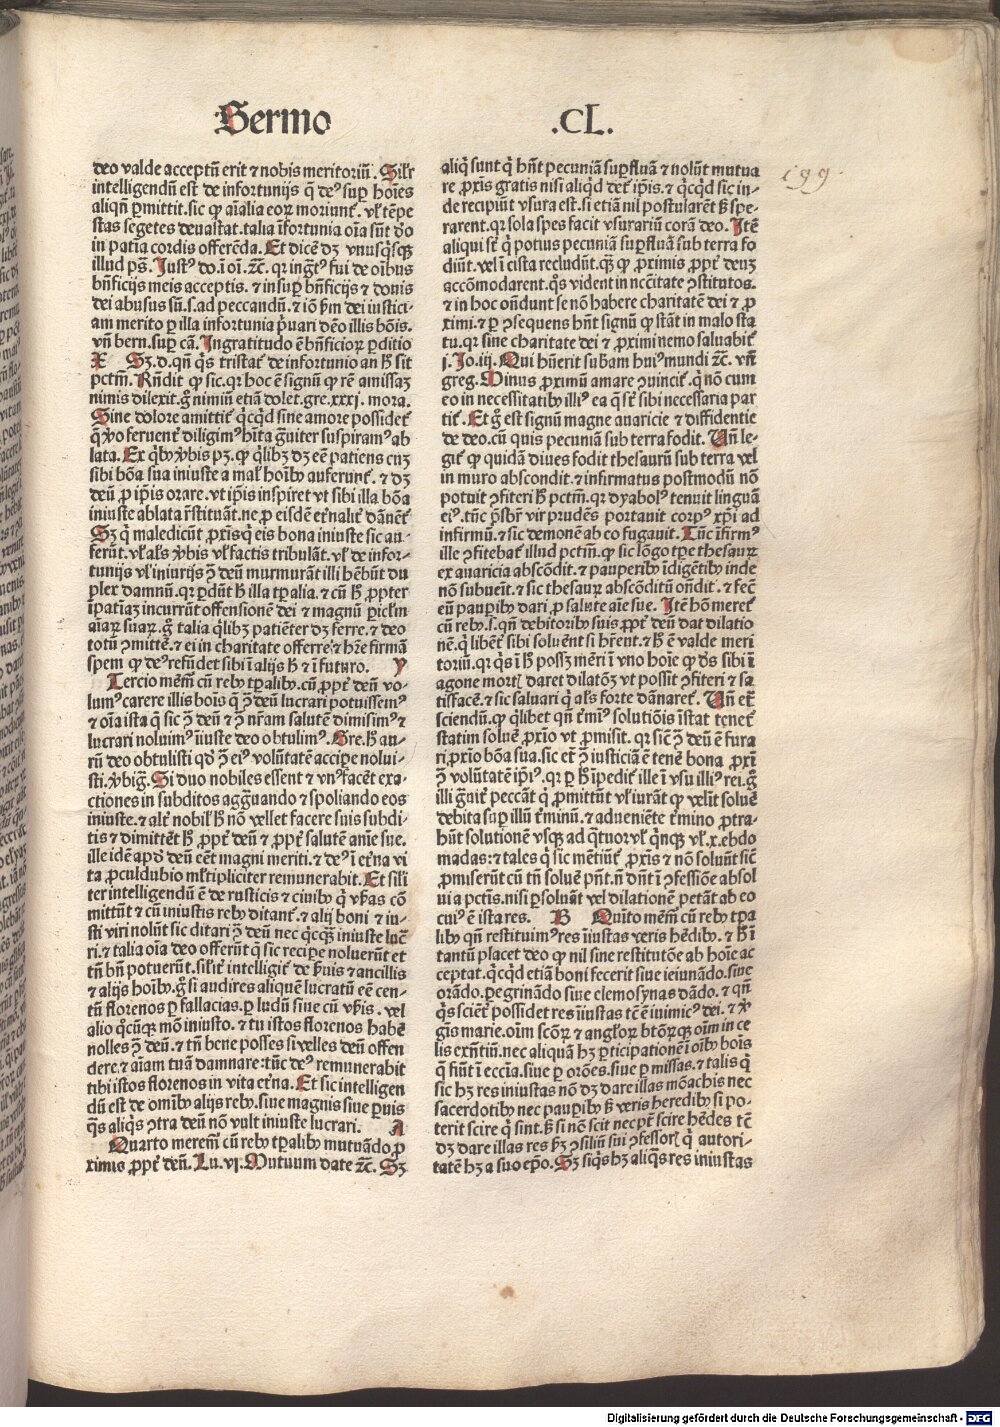 Sermo
.CL.
199.
deo valde acceptū erit ⁊ nobis meritoriū. Silr
intelligendū est de infortunijs q̄ de⁹ suꝑ hoīes
aliqñ ꝑmittit. sic ꝙ aīalia eoꝝ moriunt᷑. vl᷑ tēpe
stas segetes deuastat. talia īfortunia oīa sūt deo
in patīa cordis offerēda. Et dicē dꝫ vnusq̄sqꝫ
illud ps̄. Iust⁹ do. ī oī. ⁊c̄. qr ingᷓt⁹ fui de oībus
bn̄ficijs meis acceptis. ⁊ insuꝑ bn̄ficijs ⁊ donis
dei abusus sū. s. ad peccandū. ⁊ iō ẜm dei iustici-
am merito ꝑ illa infortunia p̄uari dēo illis bōis.
vñ bern. suꝑ cā. Ingratitudo ē bn̄ficioꝝ ꝑditio
X Sꝫ. d. qñ q̄s tristat᷑ de infortunio an h̄ sit
pctm̄. Rn̄dit ꝙ sic. qr hoc ē signū ꝙ rē amissaꝫ
nimis dilexit. g̊ nimiū etiā dolet. gre. xxxj. mora.
Sine dolore amittit᷑ q̄cqd sine amore possidet᷑
q̄ ꝟo feruent᷑ diligim⁹ hīta gᷓuiter suspiram⁹ ab
lata. Ex qͥbꝰ ꝟbis pꝫ. ꝙ qͥlibꝫ dꝫ eē patiens cuꝫ
sibi bōa sua iniuste a mal᷑ hoībꝰ auferunt᷑. ⁊ dꝫ
deū ꝓ ip̄is orare. vt ip̄is inspiret vt sibi illa bōa
iniuste ablata rn̄stituāt. ne ꝓ eisdē et᷑nalit᷑ dānēt᷑
Sꝫ q̄ maledicūt ꝓxīs q̄ eis bona iniuste sic au-
ferūt. vl᷑ als ꝟbis vl᷑ factis tribulāt. vl᷑ de infor-
tunijs vl᷑ iniurijs ꝯ deū murmurāt illi hēbūt du
plex damnū. qr ꝑdūt h̄ illa tꝑalia. ⁊ cū h̄ ꝓpter
īpatīaꝫ incurrūt offensionē dei ⁊ magnū ꝑiclm̄
aīaꝝ suaꝝ. g̊ talia qͥlibꝫ patiēter dꝫ ferre. ⁊ deo
totū ꝯmittē. ⁊ ei in charitate offerre ⁊ hr̄e firmā
spem ꝙ de⁹ refūdet sibi ī alijs h̄ ⁊ ī futuro. Y
Tercio merēm̄ cū rebꝰ tꝑalibꝰ. cū ꝓpt᷑ deū vo-
lum⁹ carere illis bōis q̄ ꝯ deū lucrari potuissem⁹
⁊ oīa ista q̄ sic ꝯ deū ⁊ ꝯ nr̄am salutē dimisim⁹ ⁊
lucrari noluim⁹ īiuste deo obtulim⁹. Gre. h̄ au-
rū deo obtulisti qd̓ ꝯ ei⁹ volūtatē accipe nolui-
sti. ꝟbig̊. Si duo nobiles essent ⁊ vn⁹ facēt exa-
ctiones in subditos aggᷓuando ⁊ spoliando eos
iniuste. ⁊ alt᷑ nobil᷑ h̄ nō vellet facere suis subdi-
tis ⁊ dimittēt h̄ ꝓpt᷑ deū ⁊ ꝓpt᷑ salutē anīe sue.
ille idē apd̓ deū eēt magni meriti. ⁊ de⁹ ī et᷑na vi
ta ꝓculdubio ml̓tipliciter remunerabit. Et sil̓i
ter intelligendū ē de rusticis ⁊ ciuibꝰ q̄ vrbas cō
mittūt ⁊ cū iniustis rebꝰ ditant᷑. ⁊ alij boni ⁊ iu-
sti viri nolūt sic ditari ꝯ deū nec q̄cqꝫ iniuste lucᷓ
ri. ⁊ talia oīa deo offerūt q̄ sic recipe noluerūt et
tn̄ bn̄ potuerūt. sil̓it᷑ intelligit᷑ de ẜuis ⁊ ancillis
⁊ alijs hoībꝰ. g̊ si audires aliquē lucratū eē cen-
tū florenos ꝑ fallacias. ꝑ ludū siue cū ꝟbis. vel
alio qͦcūqꝫ mō iniusto. ⁊ tu istos florenos habē
nolles ꝯ deū. ⁊ tn̄ bene posses si velles deū offen
dere. ⁊ aīam tuā damnare: tūc de⁹ remunerabit
tibi istos florenos in vita et᷑na. Et sic intelligen
dū est de omībꝰ alijs rebꝰ. siue magnis siue ꝑuis
q̄s aliq̄s ꝯtra deū nō vult iniuste lucrari. A
Quarto meremͥ cū rebꝰ tꝑalibꝰ mutuādo ꝓ
ximis ꝓpt᷑ deū. Lu. vi. Mutuum date ⁊c̄. Sꝫ
aliqͥ sunt qͥ hn̄t pecuniā suꝑfluā ⁊ nolūt mutua
re ꝓxīs gratis nisi aliqͥd det᷑ ip̄is. ⁊ qͥcqd sic in-
de recipiūt vsura est. si etiā nil postularent ẜ spe-
rarent. qr sola spes facit vsurariū corā deo. Itē
aliqui sūt qͥ potius pecuniā suꝑfluā sub terra fo
diūt. vel ī cista recludūt. qꝫ ꝙ ꝓximis ꝓpt᷑ deuꝫ
accōmodarent. q̄s vident in nc̄citate ꝯstitutos.
⁊ in hoc on̄dunt se nō habere charitatē dei ⁊ ꝓ
ximi. ⁊ ꝑ ꝯsequens hn̄t signū ꝙ stāt in malo sta
tu. qr sine charitate dei ⁊ ꝓximi nemo saluabit᷑
j. Jo. iij. Qui hn̄erit subām hui⁹ mundi ⁊c̄. vñ
greg. Minus ꝓximū amare ꝯuincit᷑. q̄ nō cum
eo in necessitatibꝰ illi⁹ ea q̄ st᷑ sibi necessaria par
tit᷑. Et g̊ est signū magne auaricie ⁊ diffidentie
de deo. cū quis pecuniā sub terra fodit. Un̄ le-
git᷑ ꝙ quidā diues fodit thesaurū sub terra vel
in muro abscondit. ⁊ infirmatus postmodū nō
potuit ꝯfiteri h̄ pctm̄. qr dyabol⁹ tenuit linguā
ei⁹. tūc p̄sbr̄ vir prudēs portauit corp⁹ xp̄i ad
infirmū. ⁊ sic demonē ab eo fugauit. Tūc īfirm⁹
ille ꝯfitebat᷑ illud pctm̄. ꝙ sic lōgo tꝑe thesauꝝ
ex auaricia abscōdit. ⁊ pauperibꝰ īdigētibꝰ inde
nō subueīt. ⁊ sic thesauꝝ abscōditū on̄dit. ⁊ fec᷑
eū pauꝑibꝰ dari ꝓ salute aīe sue. Itē hō meret᷑
cū rebꝰ. s. qn̄ debitoribꝰ suis ꝓpt᷑ deū dat dilatio
nē. q̄ libēt᷑ sibi soluent si hr̄ent. ⁊ h̄ ē valde meri
toriū. qr q̄s ī h̄ possꝫ mēri ī vno hoīe ꝙ dn̄s sibi ī
agone mort᷑ daret dilatōꝫ vt possit ꝯfiteri ⁊ sa
tisfacē. ⁊ sic saluari q̄ als forte dānaret᷑. Un̄ et᷑
sciendū. ꝙ qͥlibet qn̄ t᷑mī⁹ solutiōis īstat tenet᷑
statim soluē ꝓxīo vt ꝓmisit. qr sic ꝯ deū ē fura
ri ꝓxīo bōa sua. sic et᷑ ꝯ iusticiā ē tenē bona ꝓxī
ꝯ volūtatē ip̄i⁹. qr ꝑ h̄ īpedit᷑ ille ī vsu illi⁹ rei. g̊
illi gᷓuit᷑ peccāt qͥ ꝓmittūt vl᷑ iurāt ꝙ velīt soluē
debita suꝑ illū t᷑minū. ⁊ adueniēte t᷑mino ꝓtra-
hūt solutionē vsqꝫ ad qͣtuor vl᷑ qͥnqꝫ vl᷑. x. ebdo
madas: ⁊ tales qͥ sic mētiūt᷑ ꝓxīs ⁊ nō soluūt sic᷑
ꝓmiserūt cū tn̄ soluē pn̄t. n̄ dn̄t ī ꝯfessiōe absol
ui a pctīs. nisi ꝑsoluāt vel dilationē petāt ab eo
cui⁹ ē ista res. B Quīto mēm̄ cū rebꝰ tꝑa
libꝰ qn̄ restituim⁹ res īiustas veris hēdibꝰ. ⁊ h̄ ī
tantū placet deo ꝙ nil sine restitutōe ab hoīe ac
ceptat. qͥcqd etiā boni fecerit siue ieiunādo. siue
orādo. ꝑegrinādo siue elemosynas dādo. ⁊ qn̄
q̄s sciēt᷑ possidet res īiustas tc̄ ē inimic⁹ dei. ⁊ ꝟ
gīs marie. oīm scōꝝ ⁊ angloꝝ btōꝝqꝫ oīm in ce
lis exn̄tiū. nec aliquā hꝫ ꝑticipationē ī oībꝰ bōis
q̄ fiūt ī eccīa. siue ꝑ orōes. siue ꝑ missas. ⁊ talis qͥ
sic hꝫ res iniustas nō dꝫ dare illas mōachis nec
sacerdotibꝰ nec pauꝑibꝰ ẜ veris heredibꝰ si po-
terit scire qͥ sint. ẜ si nō scit nec pōt scire hēdes tc̄
dꝫ dare illas res ẜꝫ ꝯsiliū sui ꝯfessoꝝ qͥ autori-
tatē hꝫ a suo ep̄o. Sꝫ siq̄s hꝫ aliq̄s res iniustas
Digitalisierung gefördert durch die Deutsche Forschungsgemeinschaft - DFG